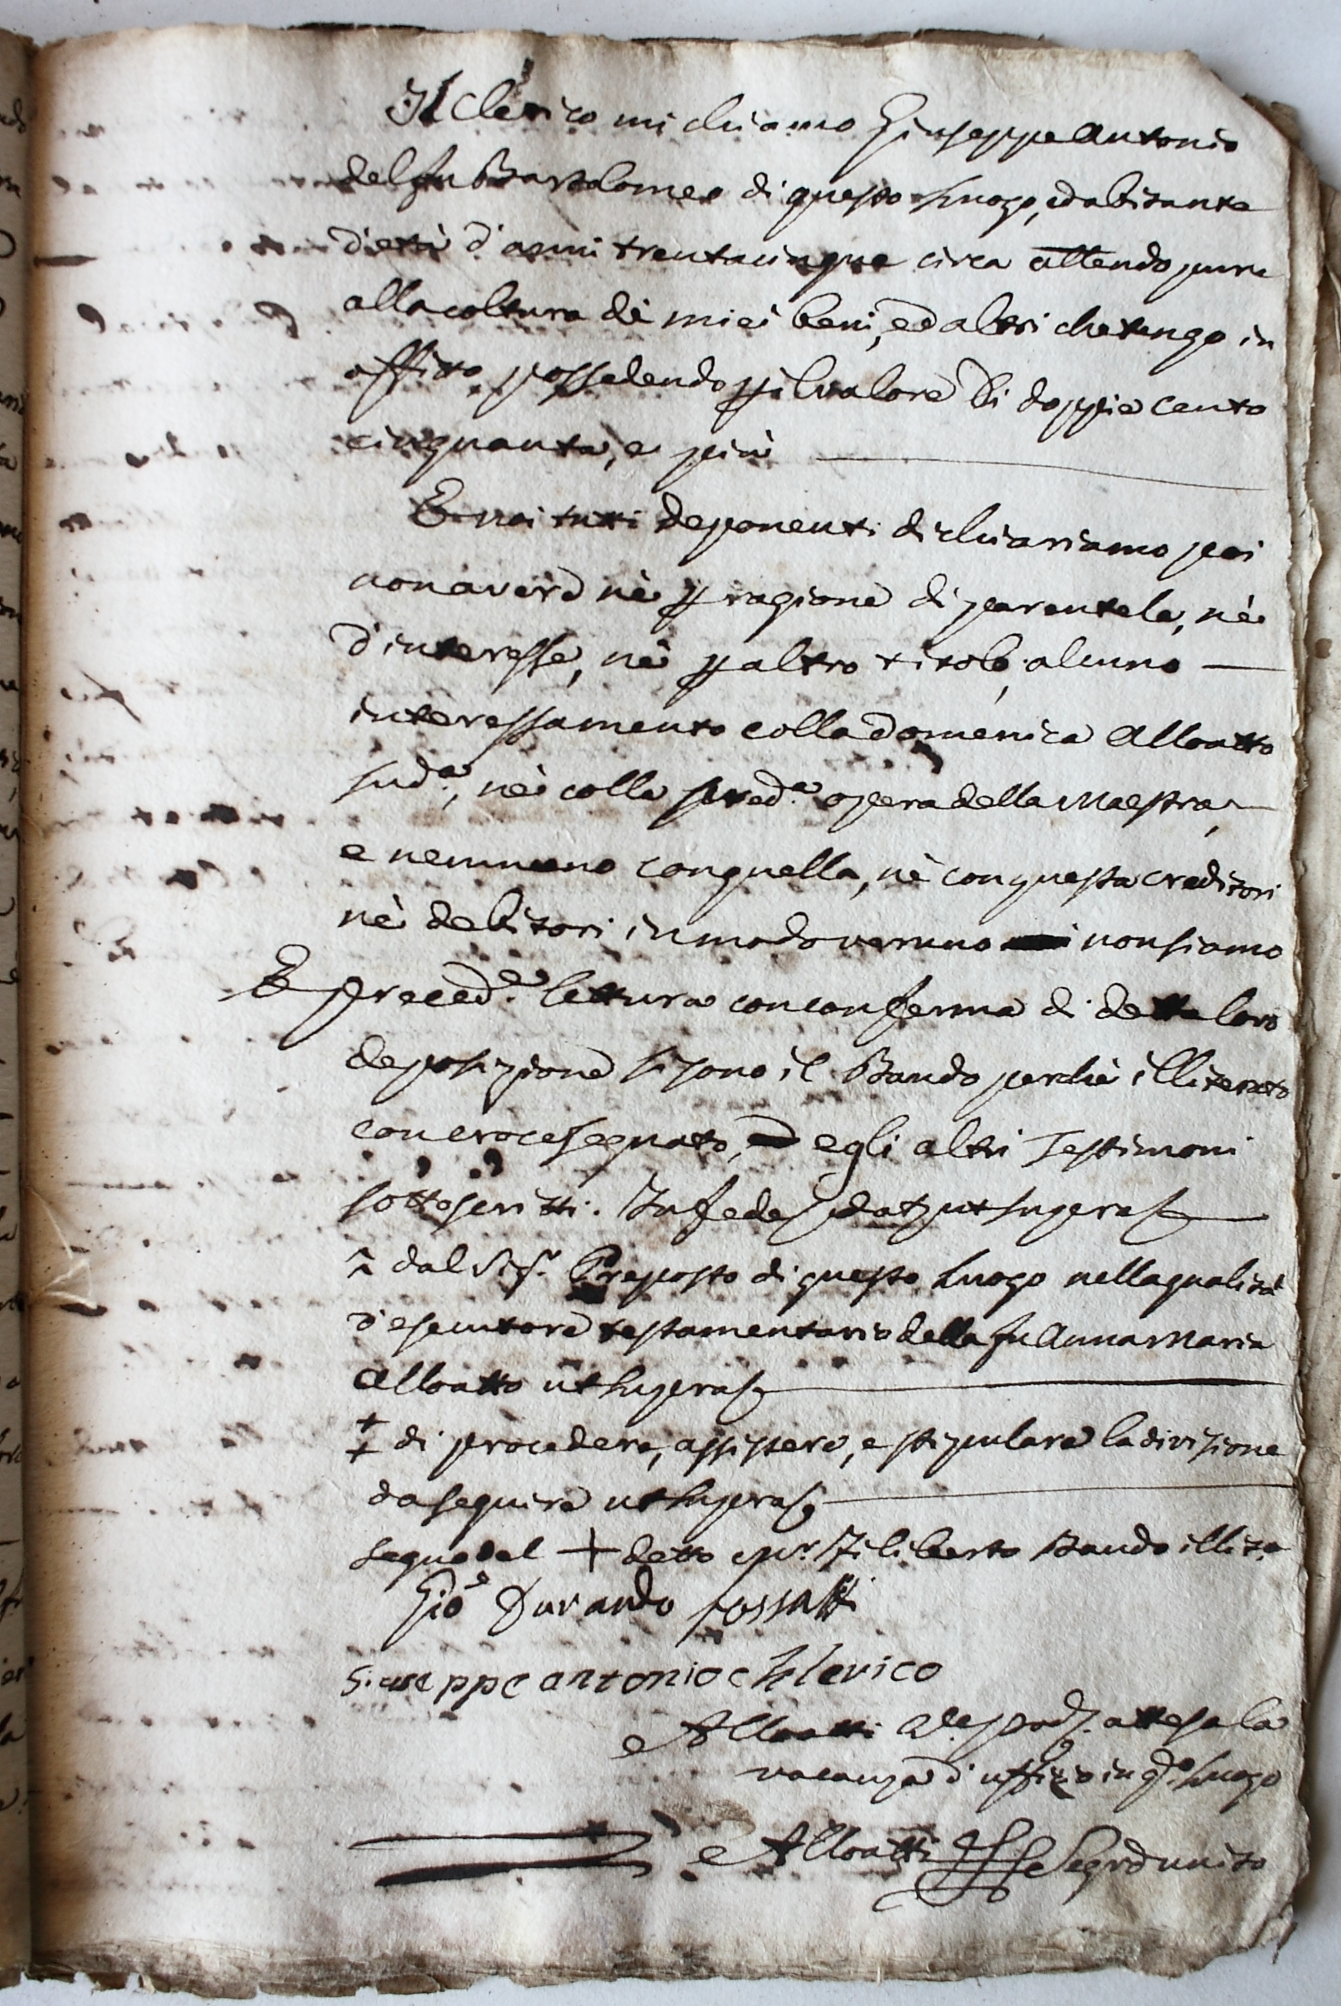 Il Clerico mi chiamo Giuseppe Antonio
del fu Bartolomeo di questo Luogo, ed abitante
d'età d'anni trentacinque circa attendo pure
alla coltura de miei beni, ed altri che tengo in
affitto possedendo p il valore di doppie cento
cinquanta, e più
E noi tutti deponenti dichiariamo poi
non avere nè p ragione di parentela, nè
d'interesse, nè p altro titolo, alcuno
interessamento colla Domenica Alloatto
sud.a, nè colla pred.a opera della Maestra,
e nemmeno con quella, nè con questa creditori
nè debitori in modo veruno non siamo
E preced.e lettura con conferma di detta loro
deposizione si sono il Bando perchè illiterato
con croce segnato, e gli altri Testimoni
sottoscritti. In fede dat ut supra
^ dal Sig.r Preposto di questo Luogo nella qualità
d'esecutore testamentario della fu Anna Maria
Alloatto ut supra
‡ di procedere, assistere, e stipulare la divisione
da seguire ut supra
Segno del + detto Filiberto Bando illit.
Gio Durando
Giuseppe antonio chlerico
Alloatti attesa la
vacanza d'uffizio in q.o Luogo
Alloatti Segr.o unito